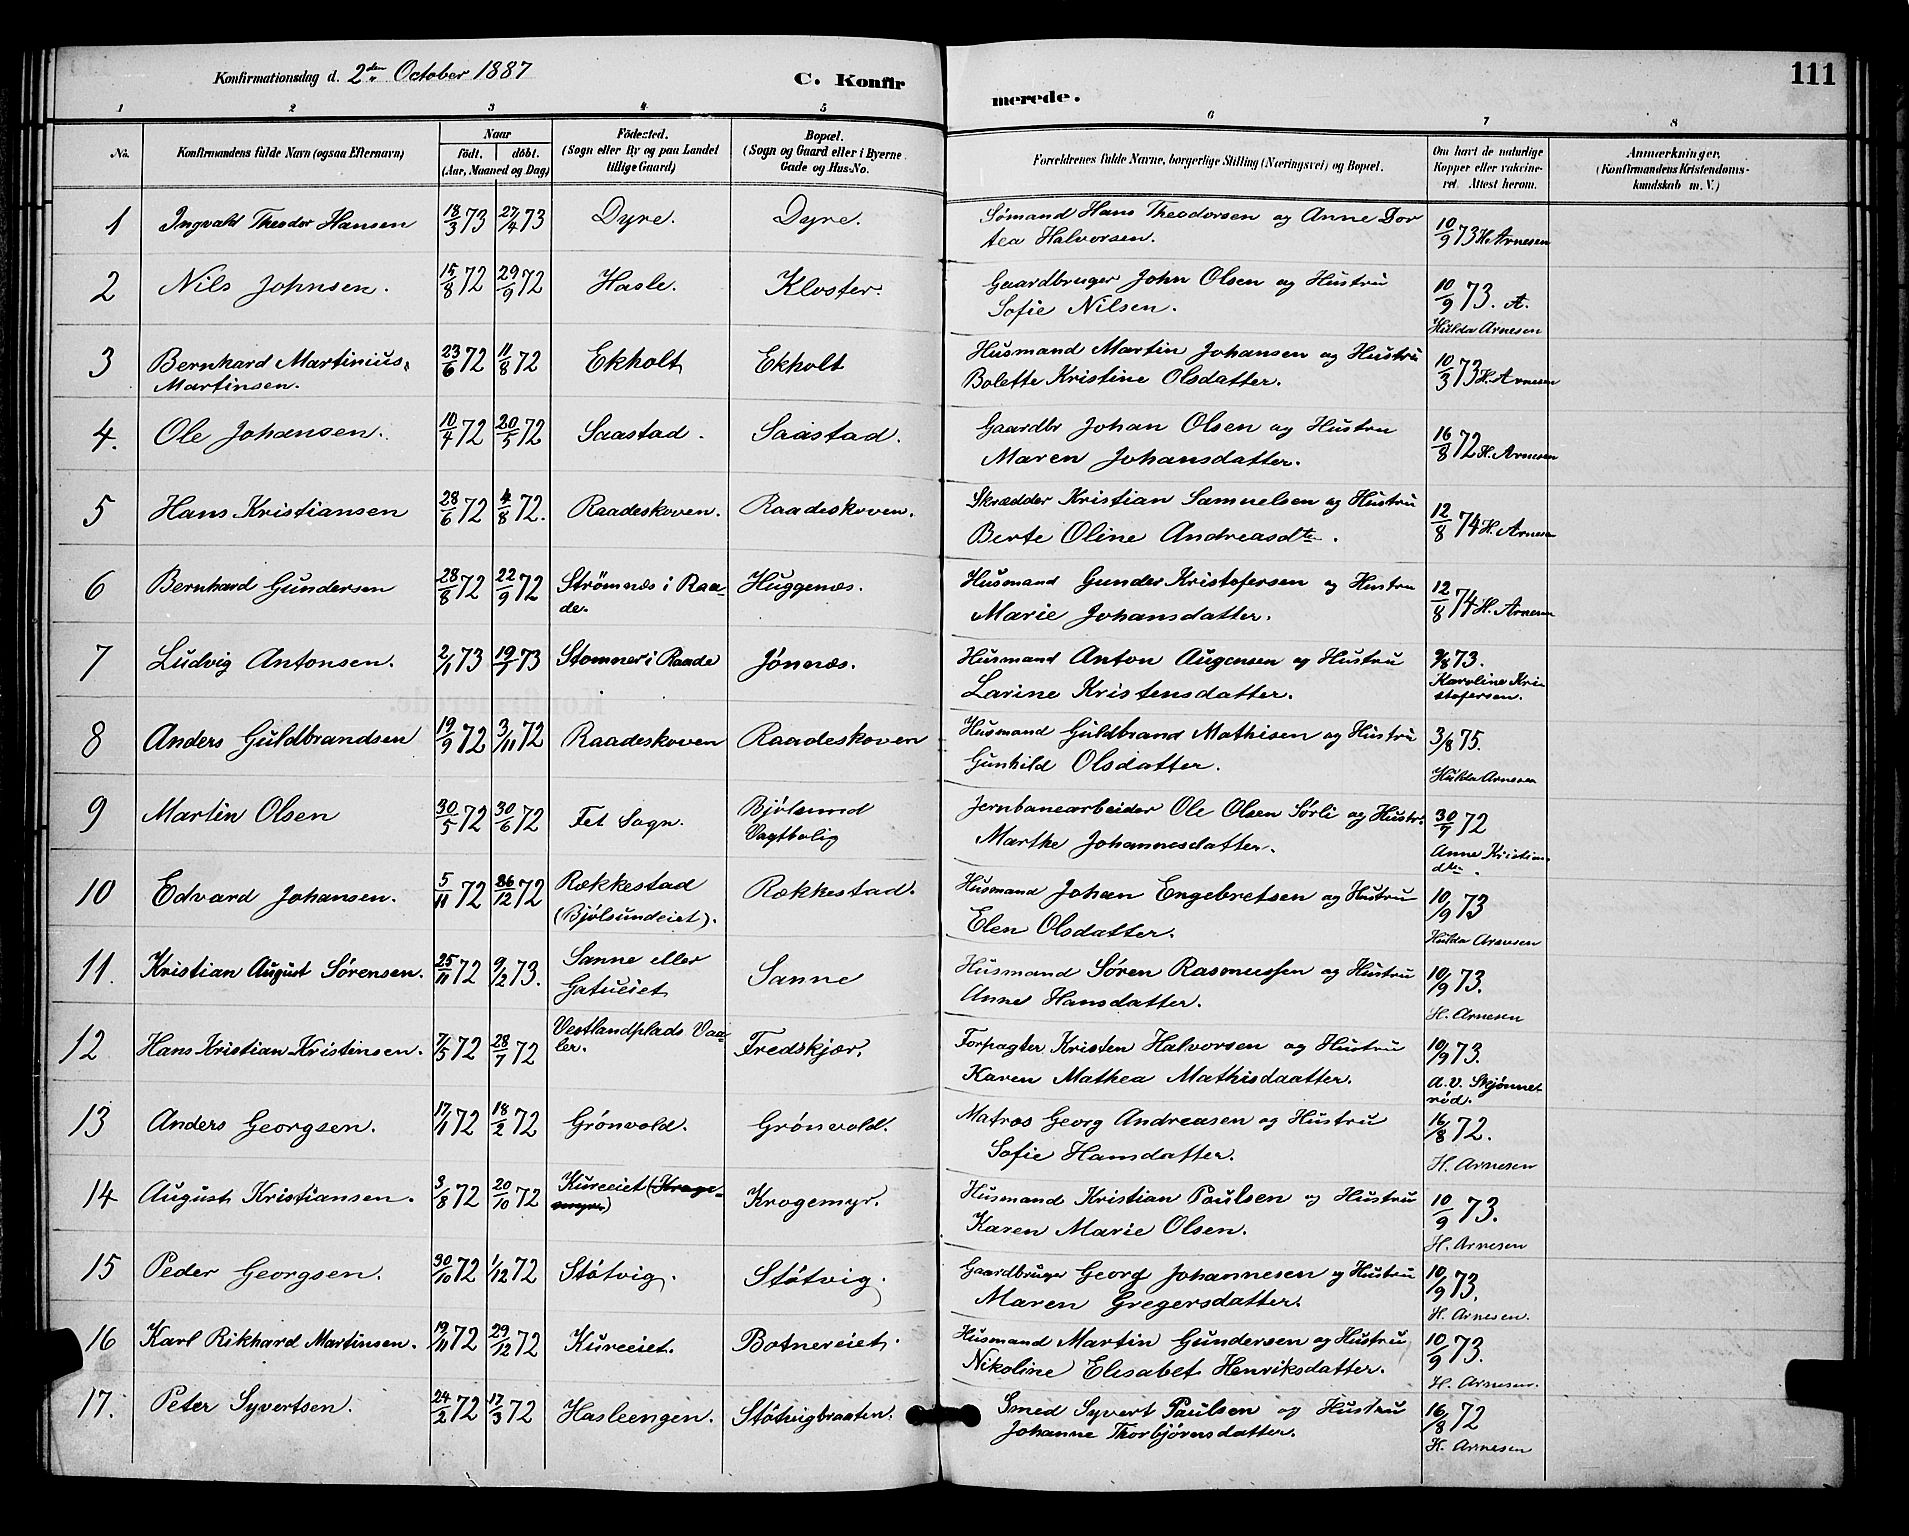 Konfirmationsdag d. 2den October 1887 C. Konfir
merede. 111
1 2 3 4 5 6 7 8
No. Konfirmandens fulde Navn (ogsaa Efternavn) Naar födt. döbt. (Aar, Maaned og Dag) Födested. (Sogn eller By og paa Landet tillige Gaard) Bopæl. (Sogn og Gaard eller i Byerne Gade og Hus-No. Forældrenes fulde Navne, borgerlige Stilling (Næringsvei) og Bopæl. Om havt de naturlige Kopper eller vakcineret. Attest herom. Anmærkninger. (Konfirmandens Kristendomskundskab m. V.)
1 Ingvald Theodor Hansen 18/3 73 27/4 73 Dyre. Dyre. Sømand Hans Theodorsen og Anne Dor
tea Halvorsen. 10/9 73 H. Arnesen
2 Nils Johnsen. 15/8 72 29/9 72 Hasle. Kloster. Gaardbruger John Olsen og Hustru
Sofie Nilsen. 10/9 73. A.
Hulda Arnesen
3 Bernhard Martinius 23/6 72 11/8 72 Ekholt Ekholt Husmand Martin Johansen og Hustru
Martinsen. Bolette Kristine Olsdatter. 10/3 73 H. Arnesen
4. Ole Johansen. 10/4 72 20/5 72 Saastad. Saastad. Gaardbr Johan Olsen og Hustru
Maren Johansdatter. 16/8 72 H. Arnesen
5 Hans Kristiansen 28/6 72 4/8 72. Raadeskoven. Raadeskoven. Skrædder Kristian Samuelsen og Hustru
Berte Oline Andreasdtr. 12/8 74 H. Arnesen
6 Bernhard Gundersen 28/8 72 22/9 72 Strømnæs i Raa- Huggenæs. Husmand Gunder Kristofersen og Hustru
de. Marie Johansdatter. 12/8 74 H. Arnesen
7 Ludvig Antonsen. 2/1 73 19/7 73 Stomner i Raade Jønnæs. Husmand Anton Augensen og Hustru 9/8 73.
Larine Kristensdatter. Karoline Kri
stofersen.
8 Anders Guldbrandsen 19/9 72 3/11 72 Raadeskoven Raadeskoven Husmand Guldbrand Mathisen og Hustru 3/8 75.
Gunhild Olsdatter. Hulda Arnesen
9 Martin Olsen 30/5 72 30/6 72 Fet Sogn. Bjølsund Jernbanearbeider Ole Olsen Sørli og Hustr.
Vagtbolig Marthe Johannesdatter. 30/7 72
Anne Kristian
dtr.
10 Edvard Johansen. 5/11 72 26/12 72 Rækkestad Rækkestad. Husmand Johan Engebretsen og Hustru
(Bjølsundeiet). Elen Olsdatter. 10/9 73
Hulda Arnesen
11. Kristian August Sørensen. 25/11 72 9/2 73. Sanne eller Sanne Husmand Søren Rasmussen og Hustru
Gatueiet Anne Hansdatter. 10/9 73.
H. Arnesen
12 Hans Kristian Kristinsen. 7/5 72 28/7 72 Vestlandplads Vaa- Fredskjær. Forpagter Kristen Halvorsen og Hustru
ler. Karen Mathea Mathisdaatter. 10/9 73.
A. V. Skjønne-
rød.
13 Anders Georgsen. 17/1 72 18/2 72 Grønvold. Grønvold. Matros Georg Andreasen og Hustru
Sofie Hansdatter. 16/8 72.
H. Arnesen
14 August Kristiansen. 3/8 72 20/10 72 Kureeiet (Kroge- Krogemyr. Husmand Kristian Paulsen og Hustru
myren) Karen Marie Olsen. 10/9 73.
H. Arnesen
15 Peder Georgsen. 30/10 72 1/12 72 Støtvig. Støtvig. Gaardbruger Georg Johannesen og Hustru
Maren Gregersdatter. 10/9 73.
H. Arnesen.
16 Karl Rikhard Martinsen. 19/11 72 29/12 72 Kureeiet. Botnereiet. Husmand Martin Gundersen og Hustru
Nikoline Elisabet Henriksdatter. 10/9 73.
H. Arnesen.
17. Peter Syvertsen. 24/2 72 17/3 72 Hasleengen. Støtvigbraaten. Smed Syvert Paulsen og Hustru
Johanne Thorbjørnsdatter. 16/8 72
H. Arnesen